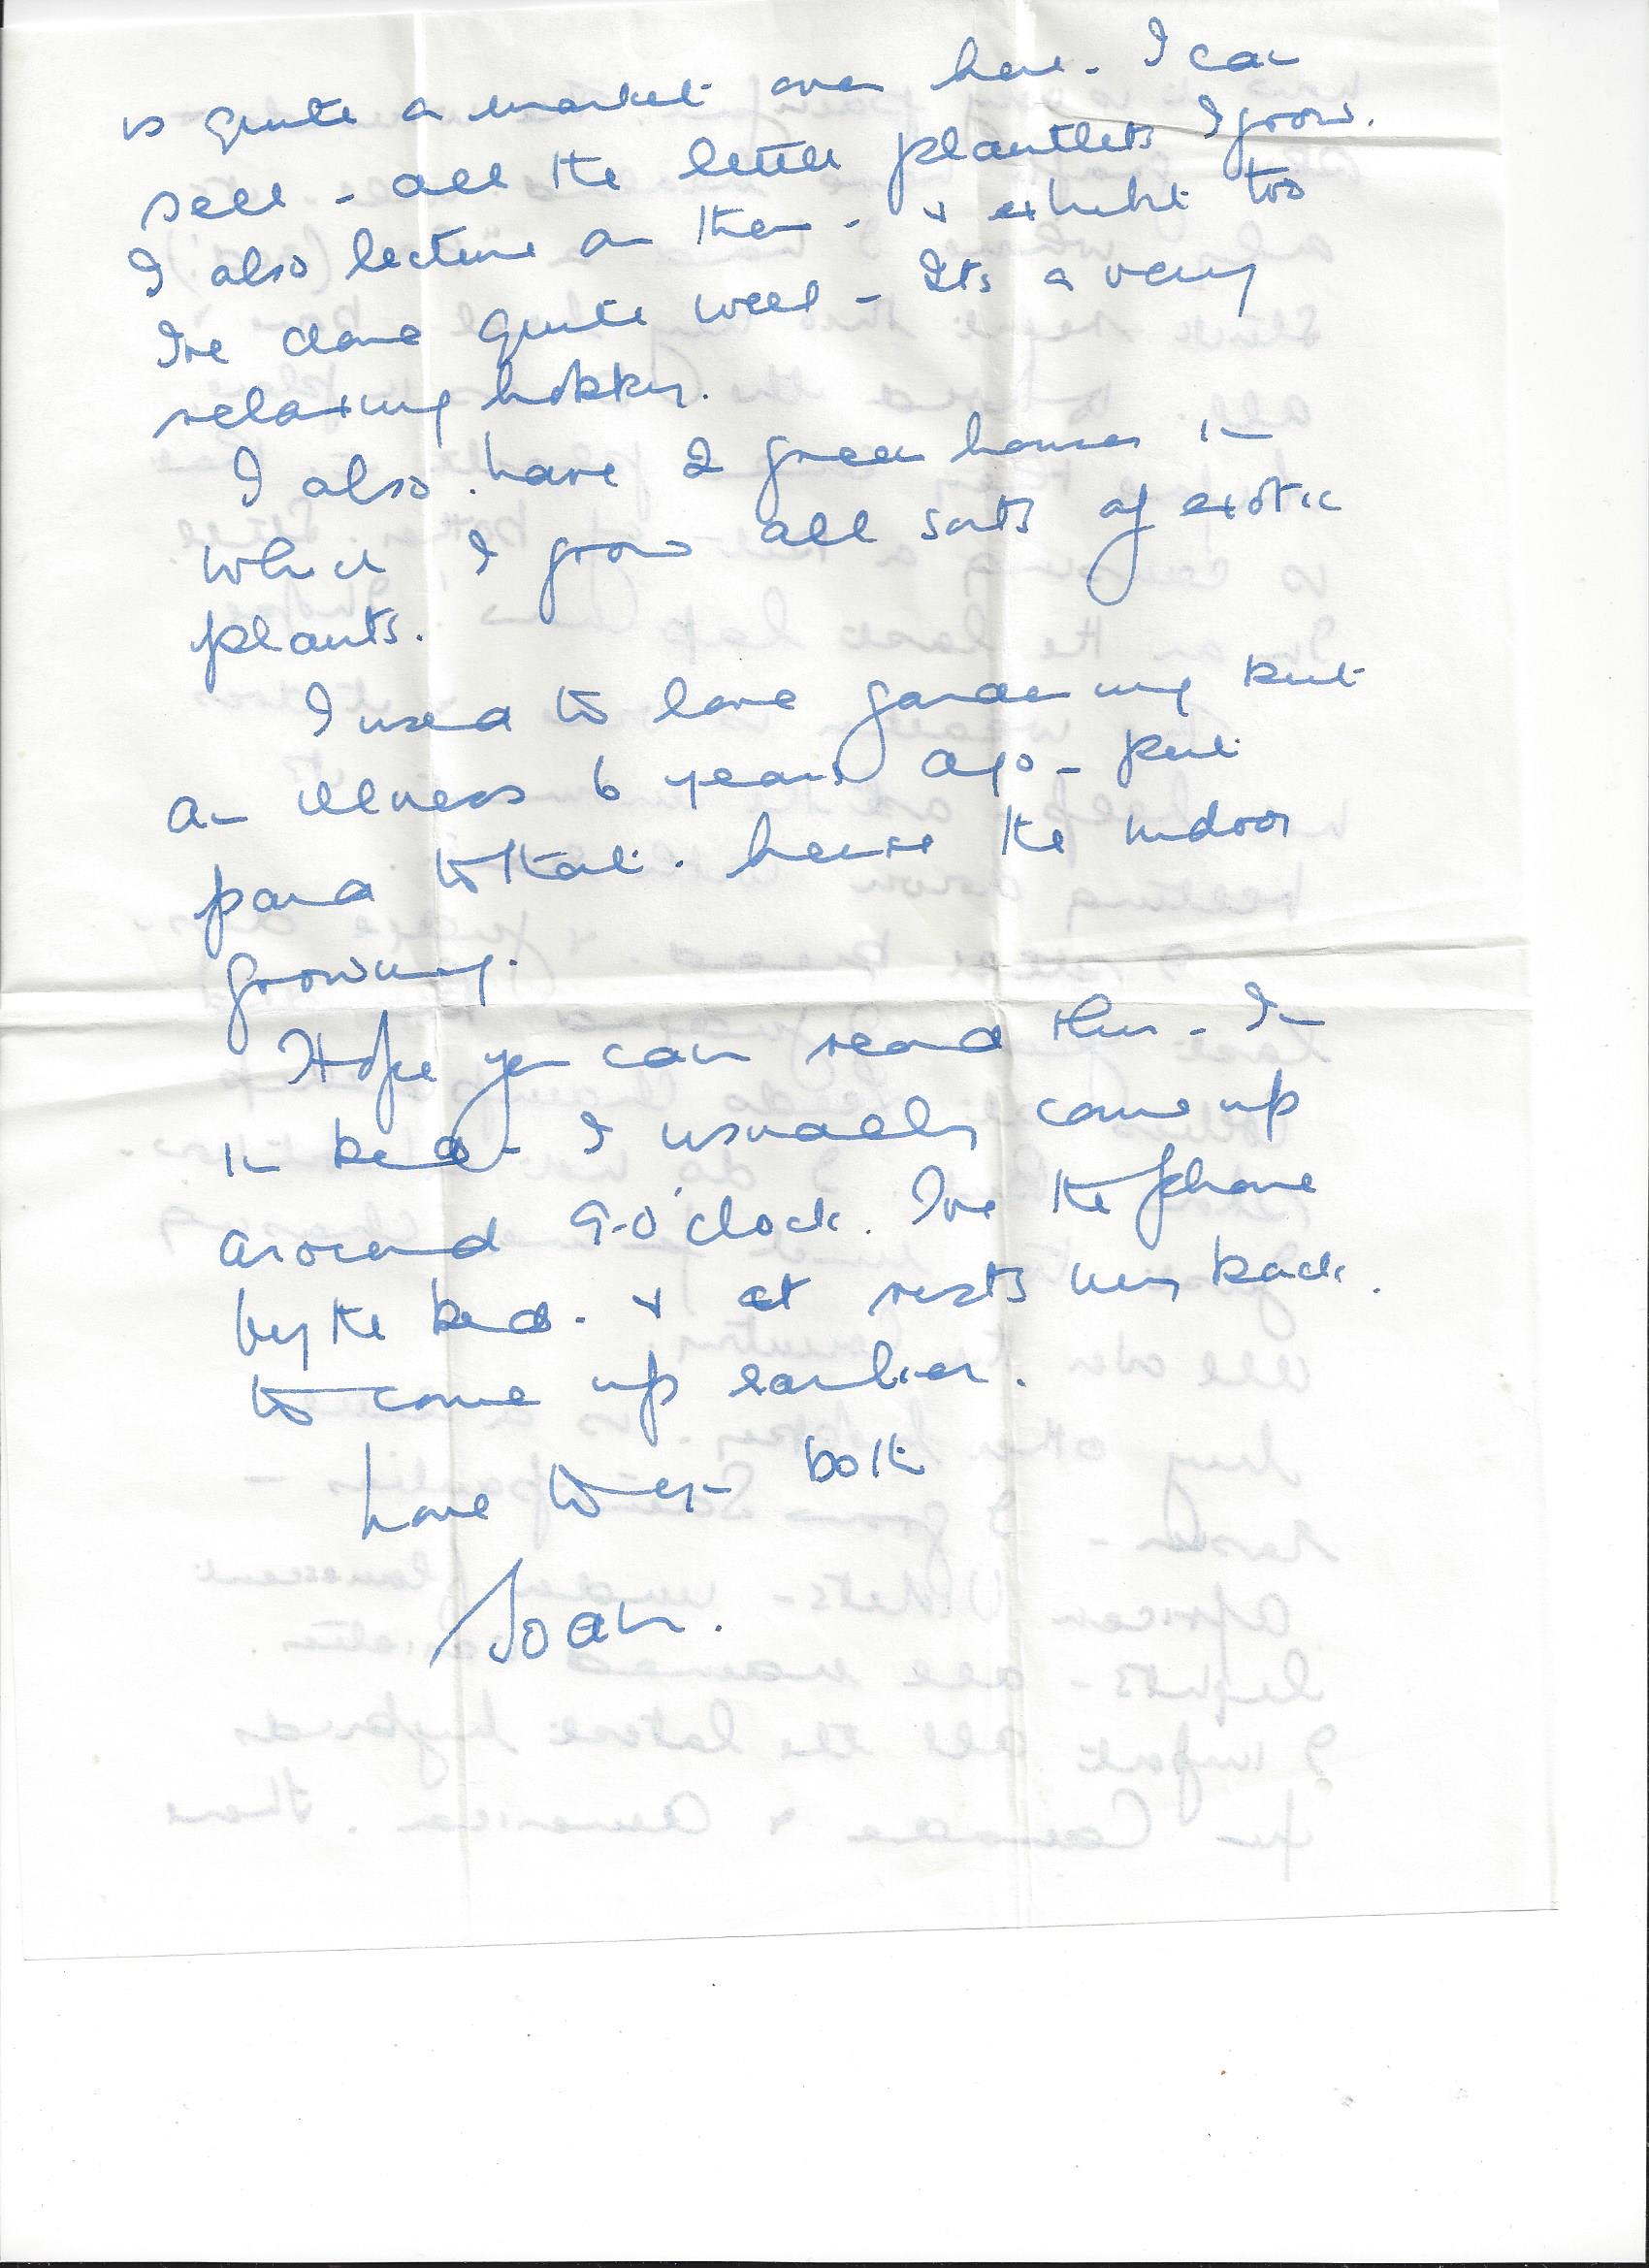 is quite a market over here - I can
sell - all the little plantlets I grow.
I also lecture on them - & exhibit too
I've done quite well - Its a very
relaxing hobby.
I also have 2 green houses in
which I grow all sorts of exotic
plants.
I used to love gardening but
an illness 6 years ago - put
paid to that. hence the indoor
growing.
Hope you can read this - I'm
in bed - I usually come up
around 9-0'clock. I've the phone
by the bed. & it rests my back.
to come up earlier.
Love to you both
Joan.